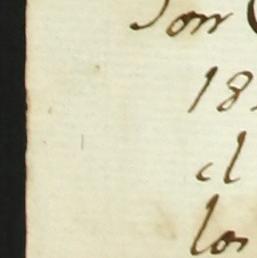 Son
18
el
los